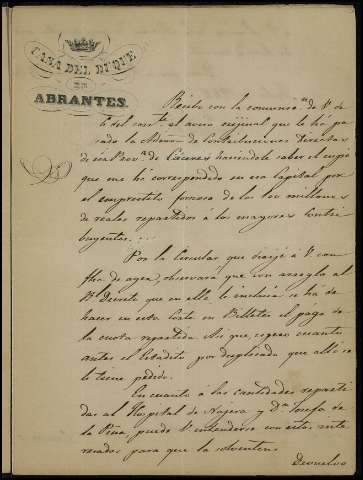 CASA DEL DUQUE
DE
ABRANTES.
Recibí con la comunicn. de V. de
6 del corrte. el aviso original que le ha pa-
sado la Admon. de Contribuciones Directas
de esa Prova. de Cáceres haciendole saber el cupo
que me há correspondido en esa Capital por
el emprestito forzoso de los 100 millones
de reales repartidos á los mayores contri-
buyentes.
Por la Circular que dirijó á V. con
fha. de ayer, observará que con arreglo al
Rl. Decreto que en ella le incluia se ha de
hacer en esta Corte en Billetes el pago de
la cuota repartida. Asi que, espero cuanto
antes el Estadito por duplicado que alli se
le tiene pedido.
En cuanto á las cantidades reparti-
das al Hospital de Najera y Da. Josefa de
la Peña, puede V. entenderse con estos inte-
resados para que la solventen.
Devuelvo